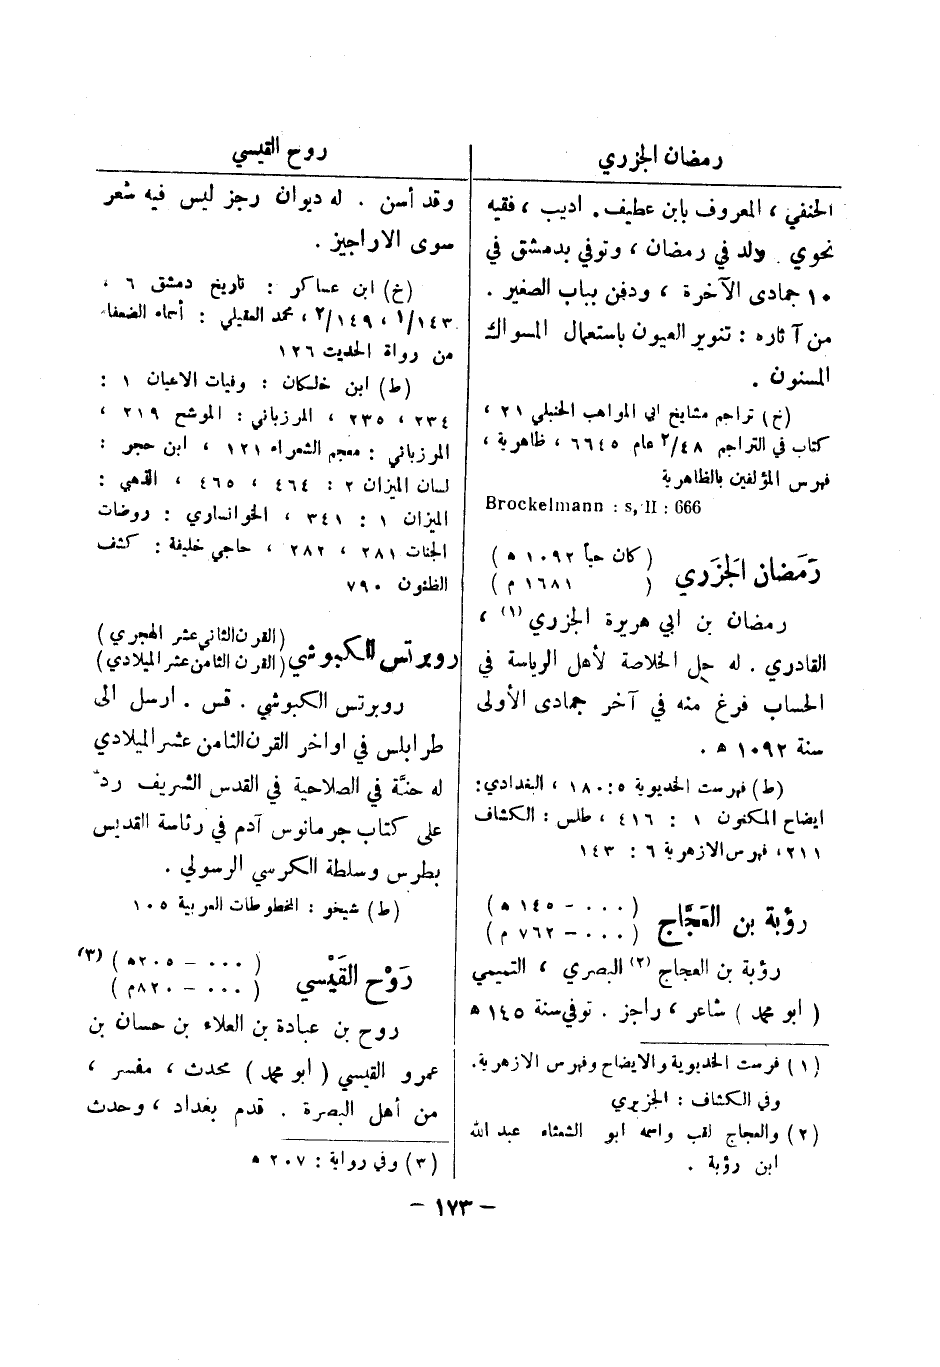 رمضان الجزري
الحنفي ، المعروف بابن عطيف. اديب ، فقيه
نحوي . ولد في رمضان ، وتوفي بدمشق في
١٠ جمادى الآخرة ، ودفن بباب الصغير .
من آثاره : تنوير العيون باستعمال المسواك
المسنون .
(خ) تراجم مشايخ ابي المواهب الحنبلي ٢١ ،
كتاب في التراجم ٢/٤٨ عام ٦٦٤٥ ، ظاهرية ،
فهرس المؤلفين بالظاهرية
Brockelmann : s, II : 666
رَمَضان الجَزَري (كان حياً ١٠٩٢ ه)
( ١٦٨١ م)
رمضان بن ابي هريرة الجزري (١) ،
القادري . له حل الخلاصة لأهل الرياسة في
الحساب فرغ منه في آخر جمادى الأولى
سنة ١٠٩٢ ه .
(ط) فهرست الخديوية ٥ : ١٨٠ ، البغدادي :
ايضاح المكنون ١ : ٤١٦ ، طلس : الكشاف
٢١١ ، فهرس الازهرية ٦ : ١٤٣
رؤبة بن العَجَّاج (٠٠٠ - ١٤٥ ه)
(٠٠٠ - ٧٦٢ م)
رؤبة بن العجاج (٢) البصري ، التميمي
( ابو محمد ) شاعر ، راجز . توفي سنة ١٤٥ ه
(١) فرست الخديوية والايضاح وفهرس الازهرية.
وفي الكشاف : الجزيري
(٢) والعجاج لقب واسمه ابو الشعثاء عبد الله
ابن رؤبة .
روح القيسي
وقد أسن . له ديوان رجز ليس فيه شعر
سوى الاراجيز .
(خ) ابن عساكر : تاريخ دمشق ٦ ،
١/١٤٣ ، ٢/١٤٩ ، محمد العقيلي : أسماء الضعفاء
من رواة الحديث ١٢٦
(ط) ابن خلكان : وفيات الاعيان ١ :
٢٣٤ ، ٢٣٥ ، المرزباني : الموشح ٢١٩ ،
المرزباني : معجم الشعراء ١٢١ ، ابن حجر :
لسان الميزان ٢ : ٤٦٤ ، ٤٦٥ ، الذهبي :
الميزان ١ : ٣٤١ ، الخوانساري : روضات
الجنات ٢٨١ ، ٢٨٢ ، حاجي خليفة : كشف
الظنون ٧٩٠
روبرتس الكبوشي (القرن الثاني عشر الهجري)
(القرن الثامن عشر الميلادي)
روبرتس الكبوشي . قس . ارسل الى
طرابلس في اواخر القرن الثامن عشر الميلادي
له حنَّة في الصلاحية في القدس الشريف ردّ
على كتاب جرمانوس آدم في رئاسة القديس
بطرس وسلطة الكرسي الرسولي .
(ط) شيخو : المخطوطات العربية ١٠٥
رَوْح القَيْسي (٠٠٠ - ٢٠٥ه) (٣)
(٠٠٠ - ٨٢٠م)
روح بن عبادة بن العلاء بن حسان بن
عمرو القيسي ( ابو محمد ) محدث ، مفسر ،
من أهل البصرة . قدم بغداد ، وحدث
(٣) وفي رواية : ٢٠٧ ه
- ١٧٣ -